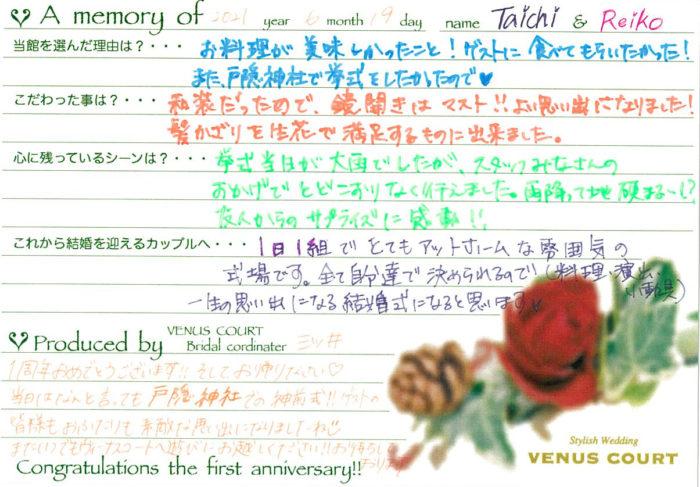 A memory of 2021 year 6 month 19 day name Taichi & Reiko
当館を選んだ理由は?・・・ お料理が美味しかったこと!ゲストに食べてもらいたかった!
また、戸隠神社で挙式をしたかったので♥
こだわった事は?・・・ 和装だったので、鏡開きはマスト!!よい思い出になりました!
髪かざりを生花で満足するものに出来ました。
心に残っているシーンは?・・・ 挙式当日が大雨でしたが、スタッフみなさんの
おかげでとどこおりなく行えました。雨降って地硬まる〜!?
友人からのサプライズに感動!!
これから結婚を迎えるカップルへ・・・ 1日1組でとてもアットホームな雰囲気の
式場です。全て自分達で決められるので!!(料理、演出、小物具)
一生の思い出になる結婚式になると思います♥
Produced by VENUS COURT Bridal cordinater 三ツ井
1周年おめでとうございます!!そしてお
当日はなんと言っても戸隠神社での神前式!!ゲストの
皆様もおふたりも素敵な思い出になりましたね♡
またいつでもヴィーナスコートへ遊びにお越しください!!お待ちしております
Congratulations the first anniversary!!
Stylish Wedding
VENUS COURT